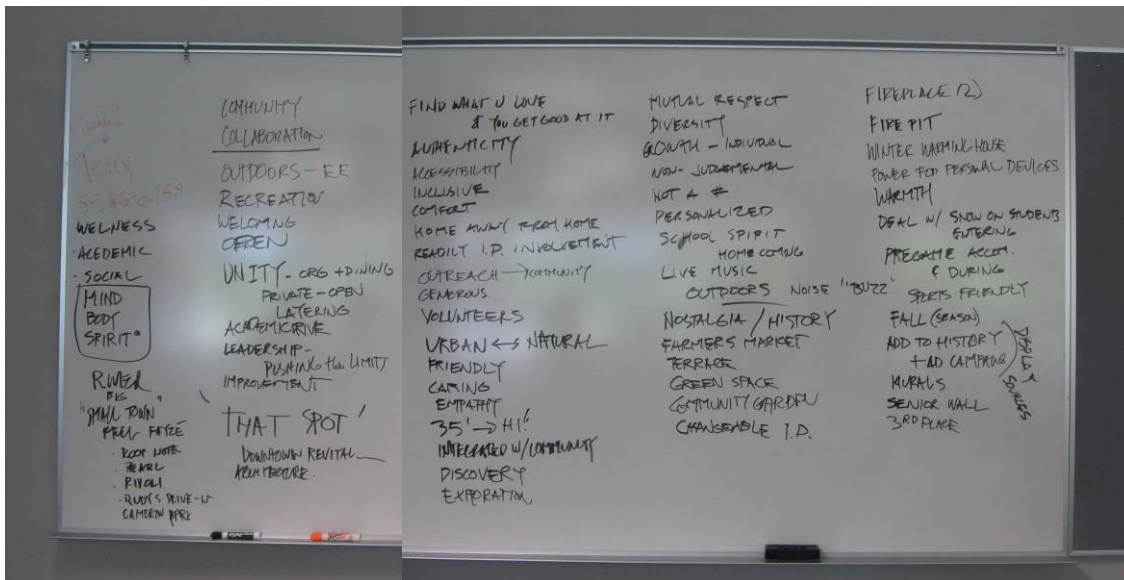 Trouble?
Terry
5-386-6258
WELNESS
· ACEDEMIC
· SOCIAL
MIND
BODY
SPIRIT
RIVER
BIG
"SMALL TOWN"
· ROOT NOTE
· PEARL
· RIVOLI
· RUDYS DRIVE-IN
CAMERON PARK
COMMUNITY
COLLABORATION
OUTDOORS - EE
RECREATION
WELCOMING
OPEN
UNITY - ORG + DINING
PRIVATE - OPEN
LAYERING
ACADEMIC DRIVE
LEADERSHIP -
PUSHING the LIMITS
IMPROVEMENT
'THAT SPOT'
DOWNTOWN REVITAL
ARCHITECTURE.
FIND WHAT U LOVE
& YOU GET GOOD AT IT
AUTHENTICITY
ACCESSIBILITY
INCLUSIVE
COMFORT
HOME AWAY FROM HOME
READILY I.D. INVOLVEMENT
OUTREACH → COMMUNITY
GENEROUS
VOLUNTEERS
URBAN ↔ NATURAL
FRIENDLY
CARING
EMPATHY
35' → HI!
INTEGRATED W/COMMUNITY
DISCOVERY
EXPORATION
MUTUAL RESPECT
DIVERSITY
GROWTH - INDIVIDUAL
NON-JUDGEMENTAL
NOT A #
PERSONALIZED
SCHOOL SPIRIT
HOMECOMING
LIVE MUSIC
OUTDOORS NOISE "BUZZ"
NOSTALGIA / HISTORY
FARMERS MARKET
TERRACE
GREEN SPACE
COMMUNITY GARDEN
CHANGEABLE I.D.
FIREPLACE (2)
FIRE PIT
WINTER WARMING HOUSE
POWER FOR PERSONAL DEVICES
WARMTH
DEAL W/ SNOW ON STUDENTS
ENTERING
PREGAME ACCOM.
& DURING
SPORTS FRIENDLY
FALL (SEASON)
ADD TO HISTORY
+ AD CAMPAIGN
MURALS
SENIOR WALL
3RD PLACE
DISPLAY
SOURCES